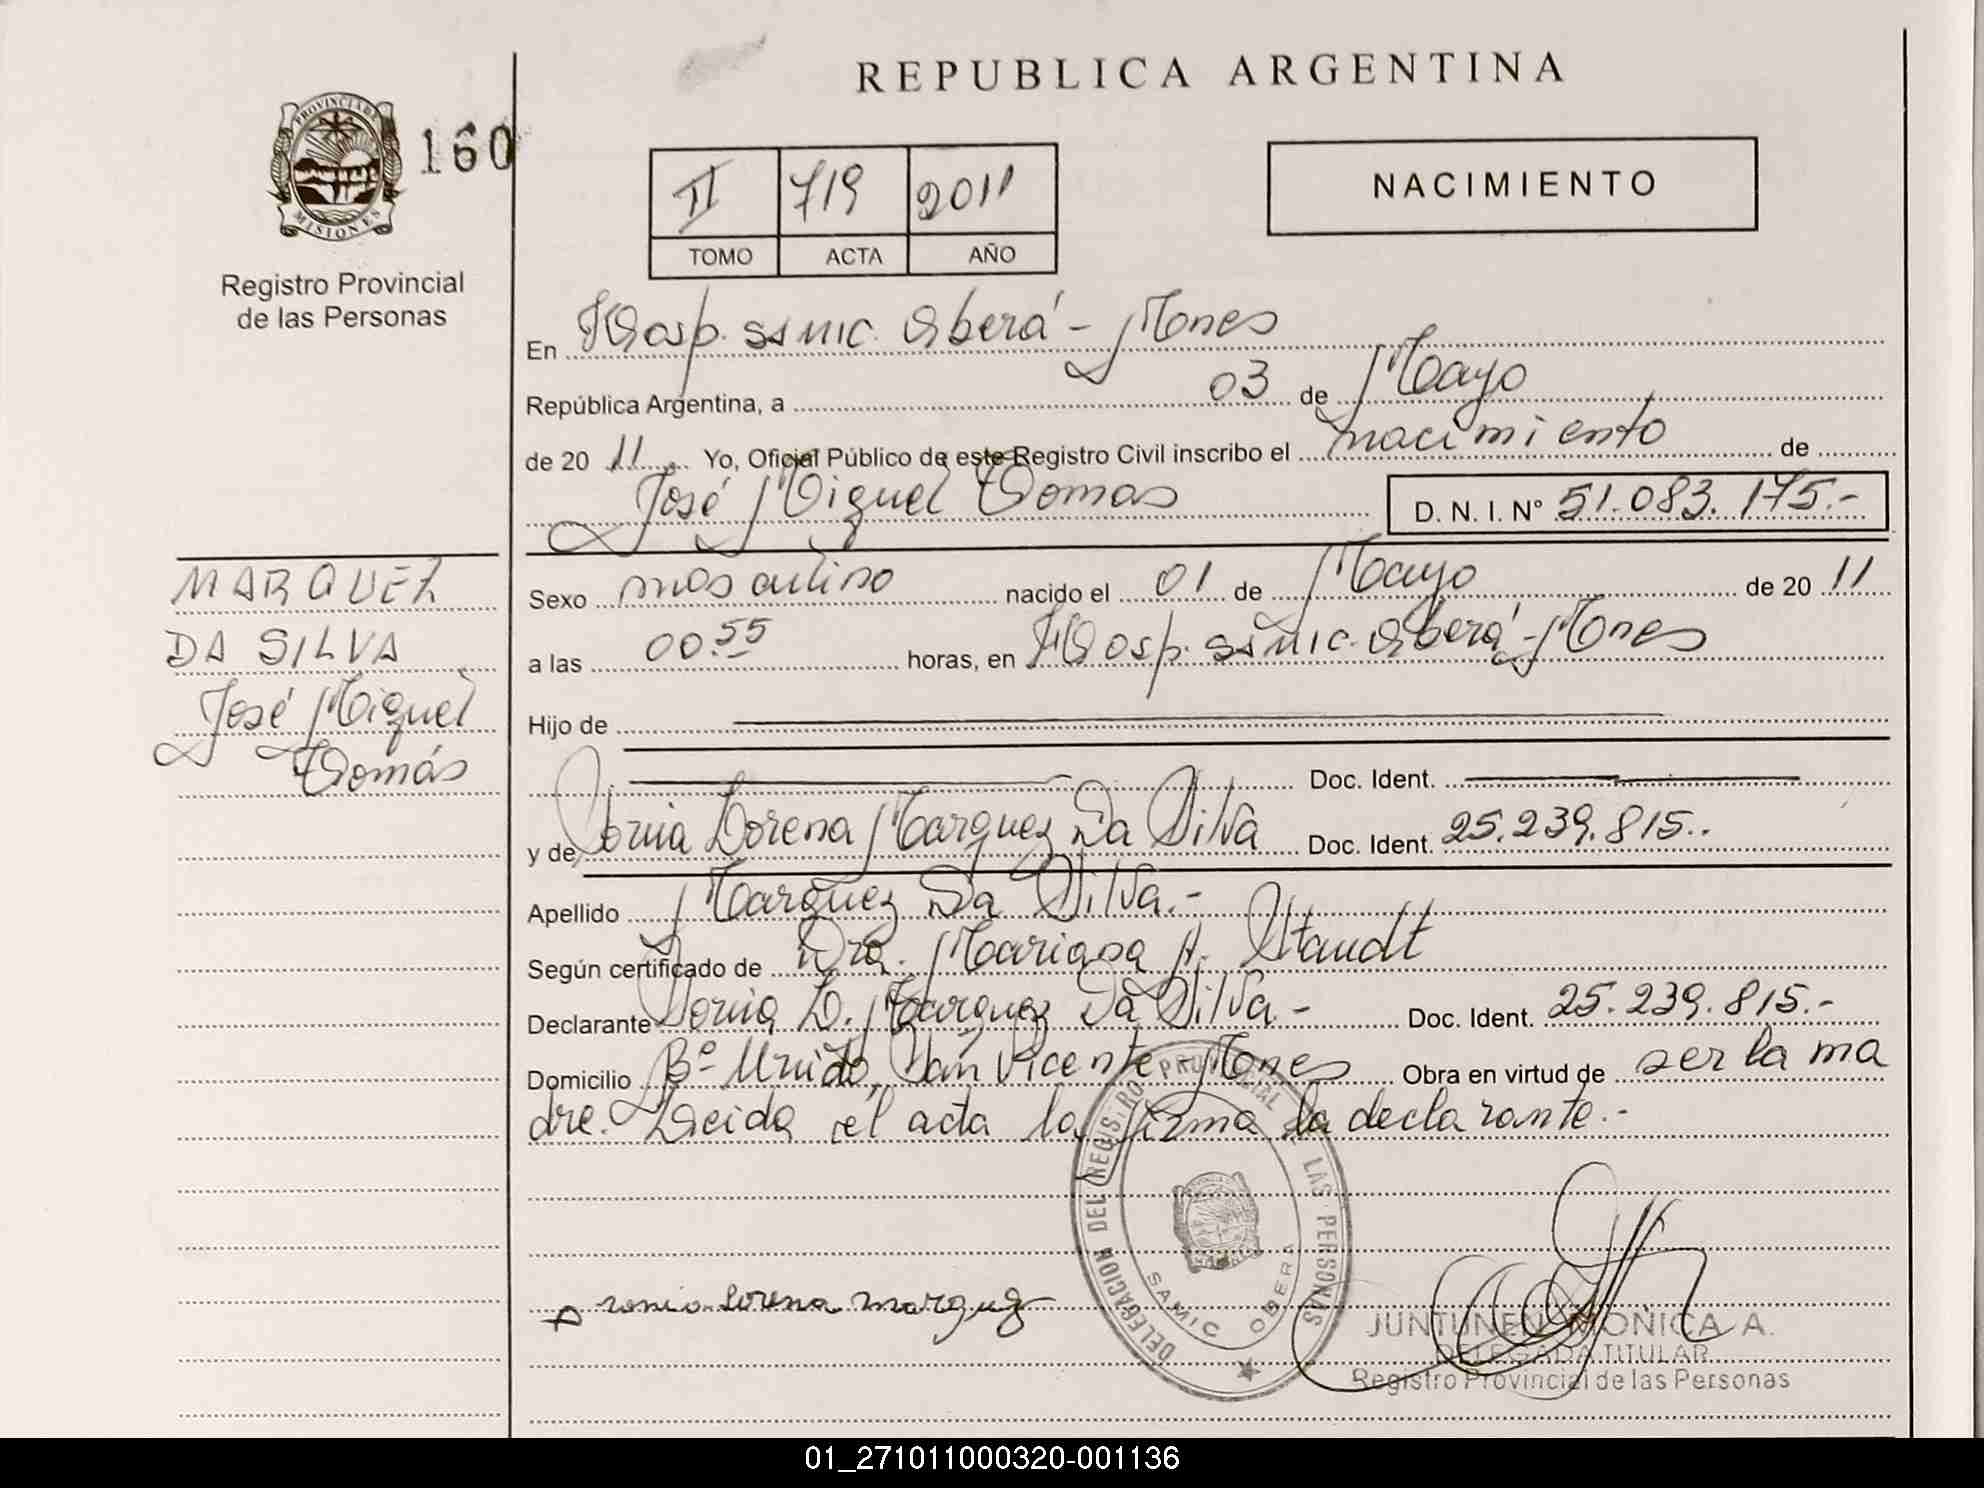 REPUBLICA ARGENTINA
PROVINCIA DE
MISIONES
160
Registro Provincial
de las Personas
II 719 2011
TOMO ACTA AÑO
NACIMIENTO
En Hosp. SAMIC. Oberá - Mones
República Argentina, a 03 de Mayo
de 20 11 Yo, Oficial Público de este Registro Civil inscribo el nacimiento de
José Miguel Tomas D. N. I. Nº 51.083.175.-
MARQUEZ
DA SILVA
José Miguel
Tomás
Sexo masculino nacido el 01 de Mayo de 20 11
a las 00.55 horas, en Hosp. SAMIC. Oberá - Mones
Hijo de
Doc. Ident.
y de Sonia Lorena Marquez Da Silva Doc. Ident. 25.239.815..
Apellido Marquez Da Silva.-
Según certificado de Dra. Mariana A. Staudt
Declarante Sonia L. Marquez Da Silva.- Doc. Ident. 25.239.815.-
Domicilio Bº Unido, San Vicente - Mones Obra en virtud de ser la ma
dre. Leida el acta la firma la declarante.-
DELEGACION DEL REGISTRO PROVINCIAL DE LAS PERSONAS
SAMIC OBERA
sonia lorena marquez
JUNTUNEN MONICA A.
DELEGADA TITULAR
Registro Provincial de las Personas
01_271011000320-001136